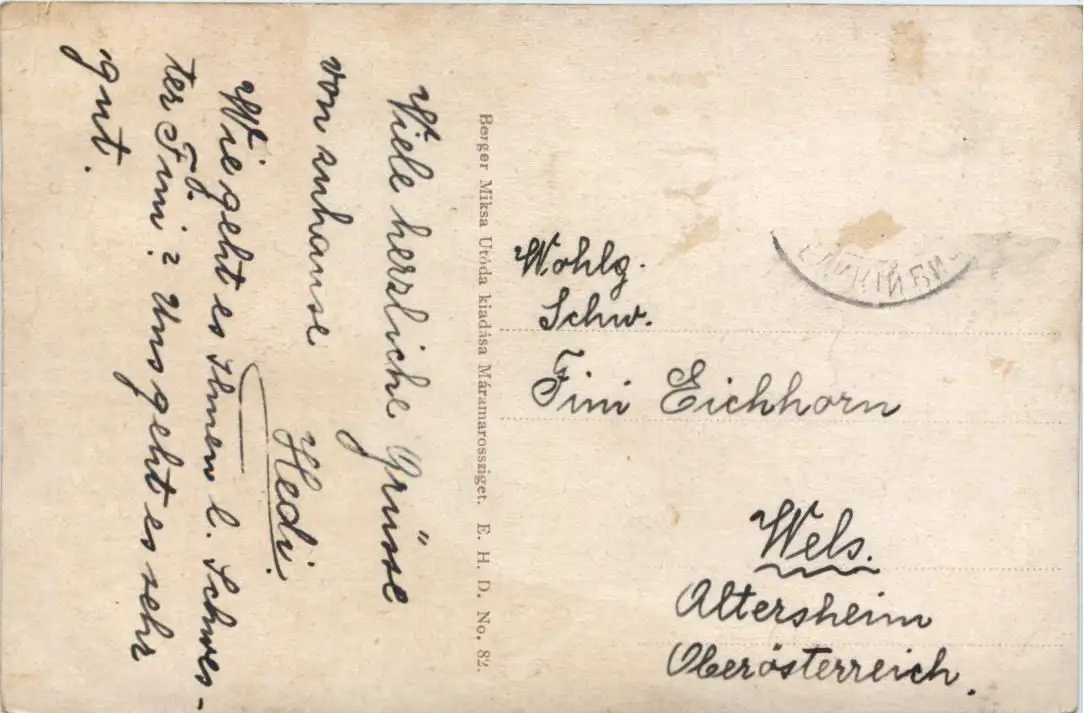 Viele herzliche Grüsse
von zuhause
Hedi.
Wie geht es Ihnen l. Schwes-
ter Fini? Uns geht es sehr
gut.
Berger Miksa Utóda kiadása Máramarossziget. E. H. D. No. 82.
Wohlg.
Schw.
Fini Eichhorn
Wels.
Altersheim
Oberösterreich.